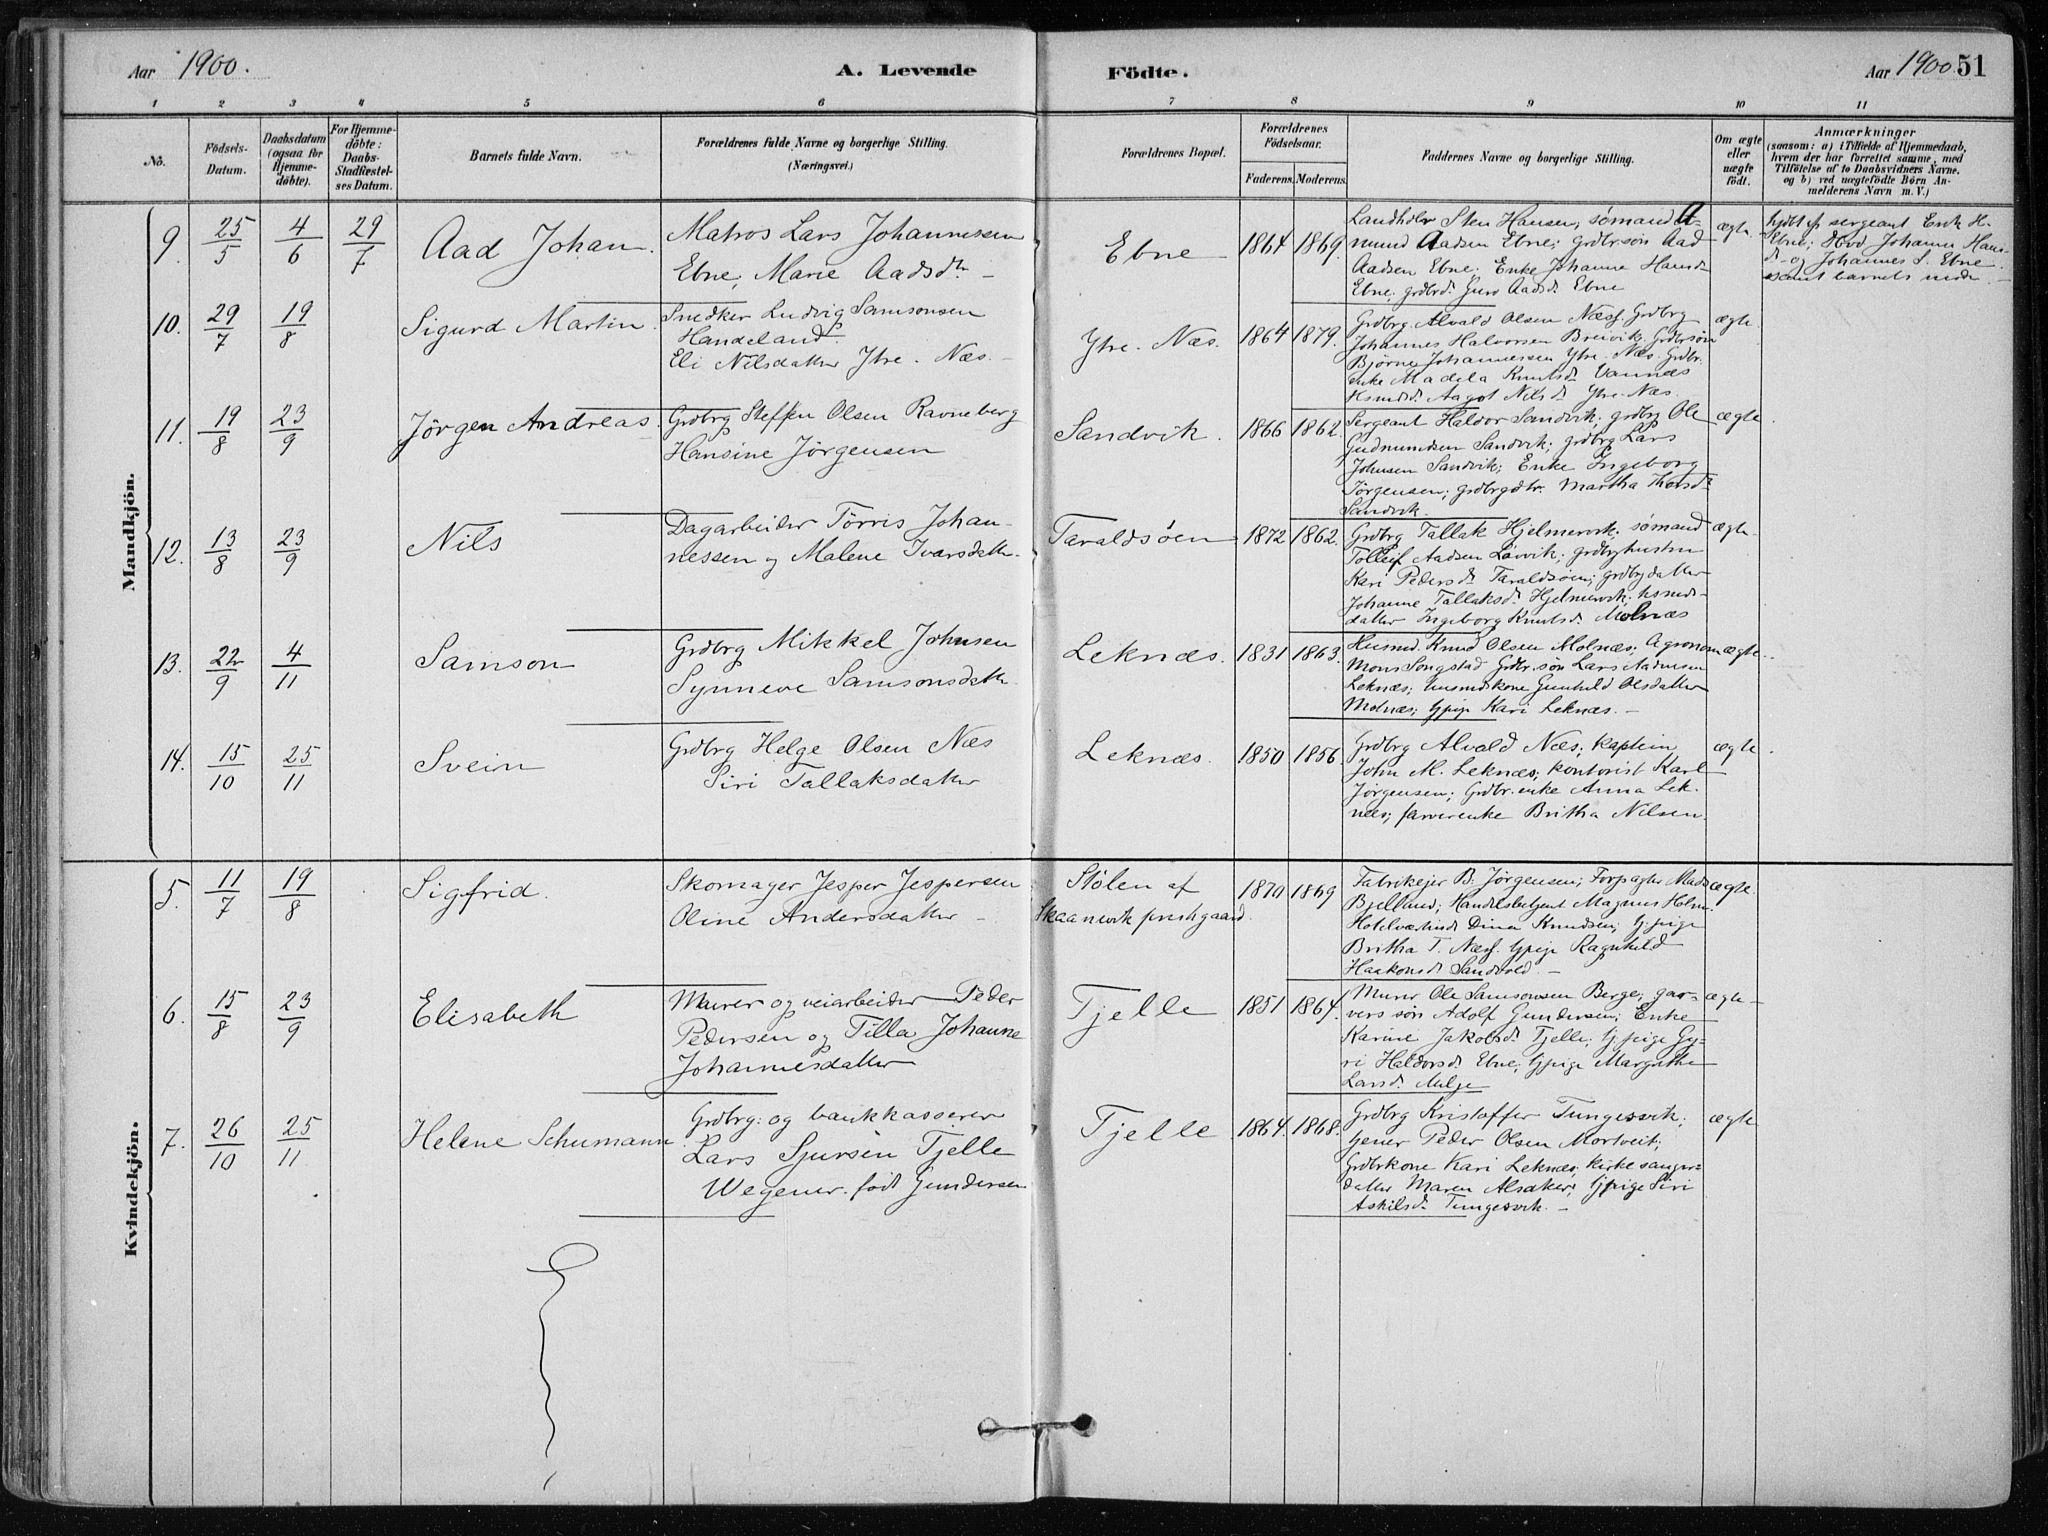 Aar 1900.
A. Levende Födte.
Aar 1900 51
1 2 3 4 5 6 7 8 9 10 11
No.
Födsels-Datum.
Daabsdatum (ogsaa for Hjemmedöbte).
For Hjemmedöbte: Daabs-Stadfæstelses Datum.
Barnets fulde Navn.
Forældrenes fulde Navne og borgerlige Stilling.
(Næringsvei.)
Forældrenes Bopæl.
Forældrenes Födselsaar.
Faderens. Moderens.
Faddernes Navne og borgerlige Stilling.
Om ægte eller uægte födt.
Anmærkninger
(saasom: a) i Tilfælde af Hjemmedaab,
hvem der har forrettet samme, med
Tilföielse af to Daabsvidners Navne,
og b) ved uægtefödte Börn Anmelderens Navn m. V.)
Mandkjön.
9. 25/5 4/6 29/7 Aad Johan.
Matros Lars Johannessen
Ebne, Marie Aadsdtr
Ebne 1864 1869.
Landhdlr Sten Hansen, sømand A-
mund Aadsen Ebne; grdbrsøn Aad
Aadsen Ebne; Enke Johanne Hansd.
Ebne, grdbrd. Guro Aadsd. Ebne
ægte.
hjdbt af sergeant Enk H.
Ebne; Hvd Johanna Hans-
d. og Johannes S. Ebne
samt barnets
10. 29/7 19/8 Sigurd Martin.
Snedker Ludvig Samsonsen
Handeland.
Eli Nilsdatter Ytre-Næs.
Ytre-Næs. 1864 1879.
Grdbrg. Alvald Olsen Næss. Grdbrg
Johannes Halvorsen Breivik. Grdbrsøn
Bjørne Johannessen Ytre-Næs. Grdbr.
enke Madela Knutsd. Vannæs
Hsmdsd. Aagot Nilsd. Ytre-Næs.
ægte
11. 19/8 23/9 Jørgen Andreas.
Grdbrg Steffen Olsen Ravneberg
Hansine Jørgensen
Sandvik. 1866 1862.
Sergeant Haldor Sandvik, grdbrg Ole
Gudmundsen Sandvik; grdbrg Lars
Johnsen Sandvik; Enke Ingeborg
Jørgensen; grdbrgdtr. Martha Thorsd.
Sandvik.
ægte
12. 13/8 23/9 Nils
Dagarbeider Tørris Johan-
nessen og Malene Ivarsdatter
Taraldsøen 1872 1862.
Grdbrg Tallak Hjelmervik; sømand
Tolleif Aadsen Løvvik; grdbrghustru
Kari Pedersd. Taraldsøen; grdbrgdatter
Johanne Tallaksd. Hjelmervik; hsmds-
datter Ingeborg Knutsd. Molnæs
ægte
13. 22/9 4/11 Samson
Grdbrg Mikkel Johnsen
Synneve Samsonsdatter.
Leknæs. 1831 1863.
Husmd. Knud Olsen Molnæs; Agronom
Mons Songstad Grdbr.søn Lars Aadnesen
Leknæs; husmdskone Gunhild Olsdatter
Molnæs; gpige Kari Leknæs.
ægte
14. 15/10 25/11 Svein
Grdbrg Helge Olsen Næs
Siri Tallaksdatter
Leknæs. 1850 1856.
Grdbrg Alvald Næs; kaptein
John M. Leknæs; kontorist Karl
Jørgensen; Grdbr.enke Anna Lek-
næs; farverenke Britha Nilsen.
ægte
Kvindekjön.
5. 11/7 19/8 Sigfrid.
Skomager Jesper Jespersen
Oline Andersdatter
Stølen af
Skaanevik prestegaard. 1870 1869
Fabrikejer B. Jørgensen; Forpagter Mads
Bjelland; Handelsbetjent Magnus Holm.
Hotelværtinde Dina Knudsen; gpige
Britha T. Næss. gpige Ragnhild
Haakonsd. Sandvold.
ægte.
6. 15/8 23/9 Elisabeth
Murer og veiarbeider Peder
Pedersen og Tilla Johanne
Johannesdatter
Tjelle 1851 1864.
Murer Ole Samsonsen Berge; gar-
vers søn Adolf Gundersen; Enke
Karine Jakobsd. Tjelle; gpige Gy-
ri Haldorsd. Ebne; gpige Margrethe
Larsd. Milje
ægte
7. 26/10 25/11 Helene Schumann
Grdbrg: og bankkasserer
Lars Sjursen Tjelle
Wegener. født Gundersen
Tjelle 1864. 1868.
Grdbrg Kristoffer Tungesvik;
Peder Olsen Mortveit;
Grdbrkone Kari Leknæs; kirkesanger-
datter Maren Alsaker; gpige Siri
Askilsd. Tungesvik.
ægte